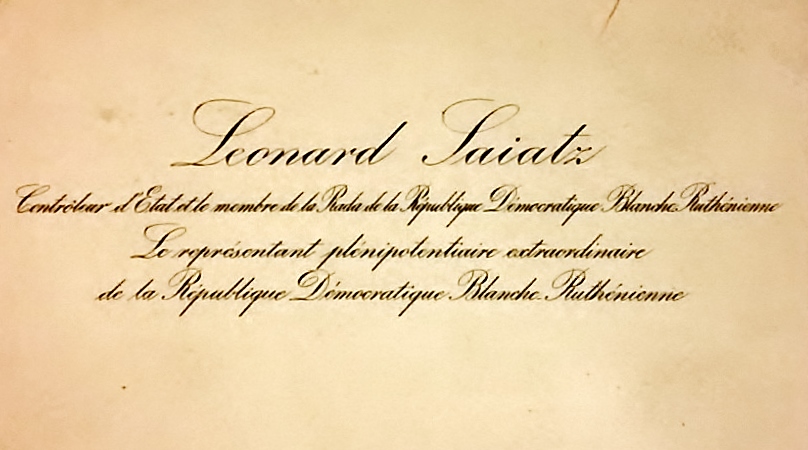 Leonard Saiatz
Contrôleur d'Etat et le membre de la Rada de la République Démocratique Blanche Ruthénienne
Le représentant plénipotentiaire extraordinaire
de la République Démocratique Blanche-Ruthénienne